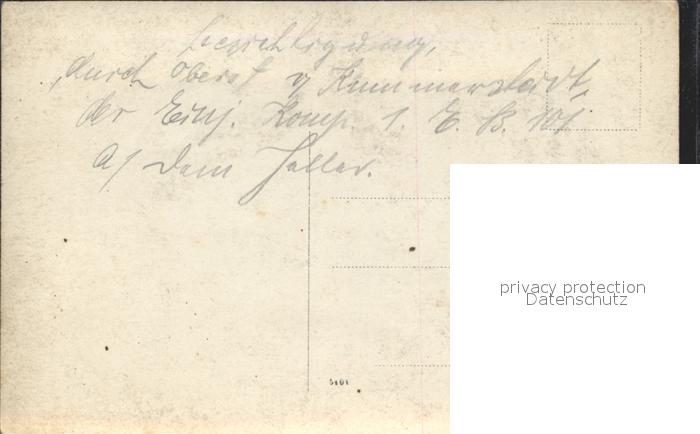 Besichtigung,
durch Oberst v. Kummerstadt,
der Einj. Komp. 1. E. B. 101
a/ dem Heller.
privacy protection
Datenschutz
5101